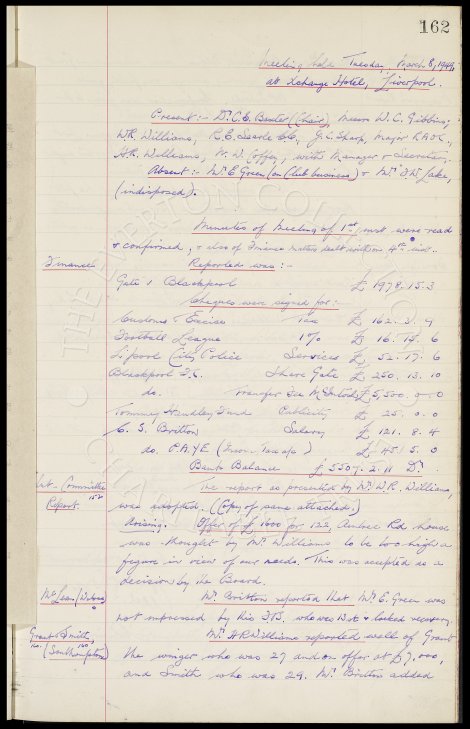 162
Meeting held Tuesday, March 8, 1949,
at Xchange Hotel, Liverpool.
Present:- Dr. C.E. Baxter (Chair), Messrs W.C. Gibbins,
W.R. Williams, R.E. Searle J.C. Sharp, Major R.
A.R. Williams, N.W. Coffey, with Manager & Secretary.
Absent:- Mr. E Green (on Club business) & Mr.
(indisposed).
Minutes of Meeting of 1st inst were read
& confirmed, & also of Finance matters dealt with on 4th inst.
Finance Reported was:-
Gate v Blackpool £ 1978.15.3
Cheques were signed for:-
Customs & Excise Tax £ 162. 3. 9
Football League 1% £ 16. 14. 6
L'pool City Police Services £ 52. 17. 6
Blackpool F.C. Share Gate £ 250. 13. 10
do. Transfer Fee McIntosh £5,500. 0. 0
Tommy Handley Fund Publicity £ 25. 0. 0
C. S. Britton Salary £ 121. 8. 4
do P.A.Y.E (Incom. Tax a/c) £ 451 5. 0
Bank Balance £ 5507. 2. 11 Dr.
Int. Committee The report as presented by Mr. W.R. Williams,
Report. 152 was adopted. (Copy of same attached.)
Arising: Offer of £1600 for 122, Aintree Rd. house
was thought by Mr. Williams to be too high a
figure in view of our needs. This was accepted as a
decision by the Board.
Mr. Britton reported that Mr. E. Green was
not impressed by this who was & lacked recovery.
Grant & Smith, Mr. A R Williams reported well of Grant
(Southampton) the winger who was 27 and on offer at £7,000,
and Smith who was 29. Mr. Britton added
THE EVERTON COLLECTION